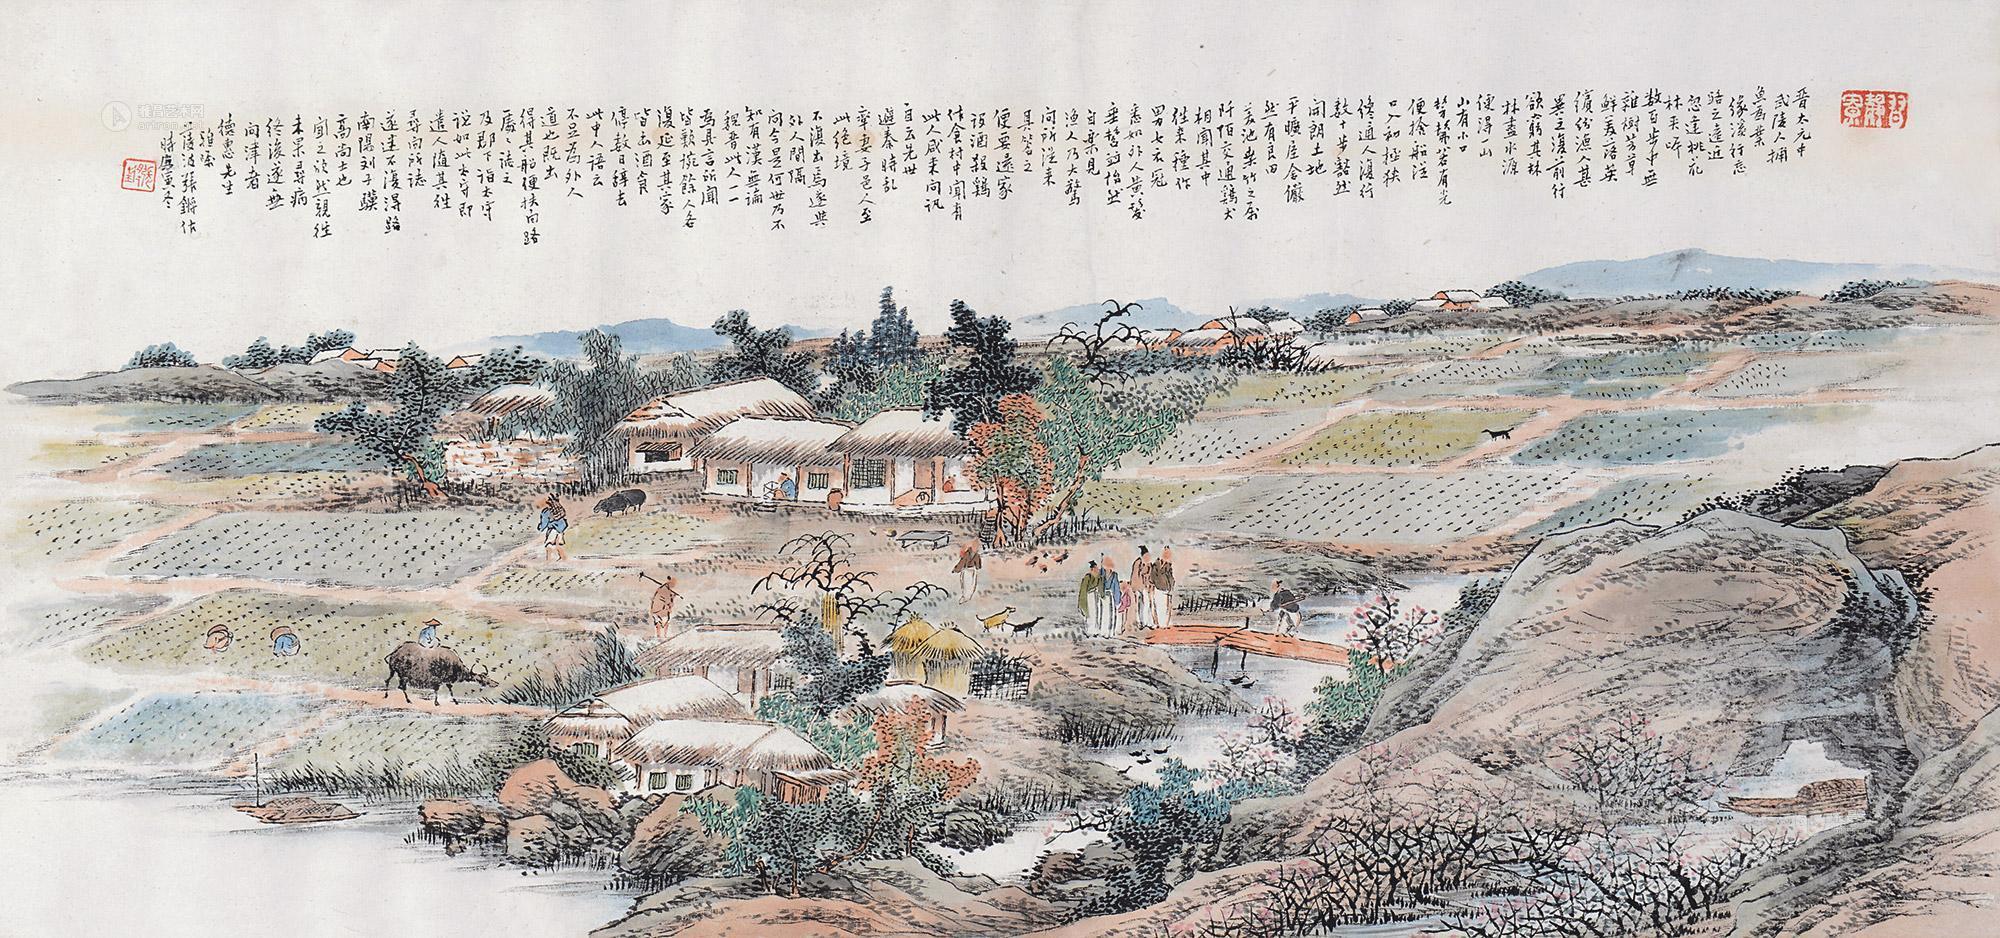 晉太元中
武陵人捕
魚為業
緣溪行忘
路之遠近
忽逢桃花
林夾岸
數百步中無
雜樹芳草
鮮美落英
繽紛漁人甚
異之復前行
欲窮其林
林盡水源
便得一山
山有小口
髣髴若有光
便捨船從
口入初極狹
通人復行
數十步豁然
開朗土地
平曠屋舍儼
然有良田
美池桑竹之屬
阡陌交通雞犬
相聞其中
往來種作
男女衣冠
悉如外人黃髮
垂髫並怡然
自樂見
漁人乃大驚
問所從來
具答之
便要還家
設酒殺雞
作食村中聞有
此人咸來問訊
自云先世
避秦時亂
率妻子邑人至
此絕境
不復出焉遂與
外人間隔
問今是何世乃不
知有漢無論
魏晉此人一一
為具言所聞
皆歎惋餘人各
復延至其家
皆出酒食
停數日辭去
此中人語云
不足為外人
道也既出
得其船便扶向路
處〻誌之
及郡下詣太守
說如此太守即
遣人隨其往
尋向所誌
遂迷不復得路
南陽劉子驥
高尚士也
聞之欣然親往
未果尋病
終後遂無
問津者
德惠先生
雅屬
波張錚作
時庚寅冬
雅昌艺术网
artron.net